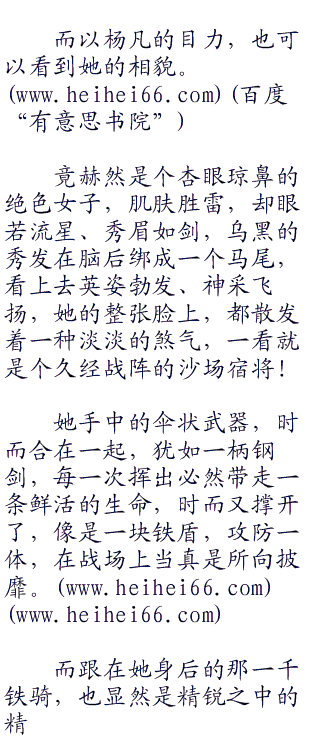 而以杨凡的目力，也可
以看到她的相貌。
(www.heihei66.com)(百度
“有意思书院”)
竟赫然是个杏眼琼鼻的
绝色女子，肌肤胜雷，却眼
若流星、秀眉如剑，乌黑的
秀发在脑后绑成一个马尾，
看上去英姿勃发、神采飞
扬，她的整张脸上，都散发
着一种淡淡的煞气，一看就
是个久经战阵的沙场宿将！
她手中的伞状武器，时
而合在一起，犹如一柄钢
剑，每一次挥出必然带走一
条鲜活的生命，时而又撑开
了，像是一块铁盾，攻防一
体，在战场上当真是所向披
靡。(www.heihei66.com)
(www.heihei66.com)
而跟在她身后的那一千
铁骑，也显然是精锐之中的
精